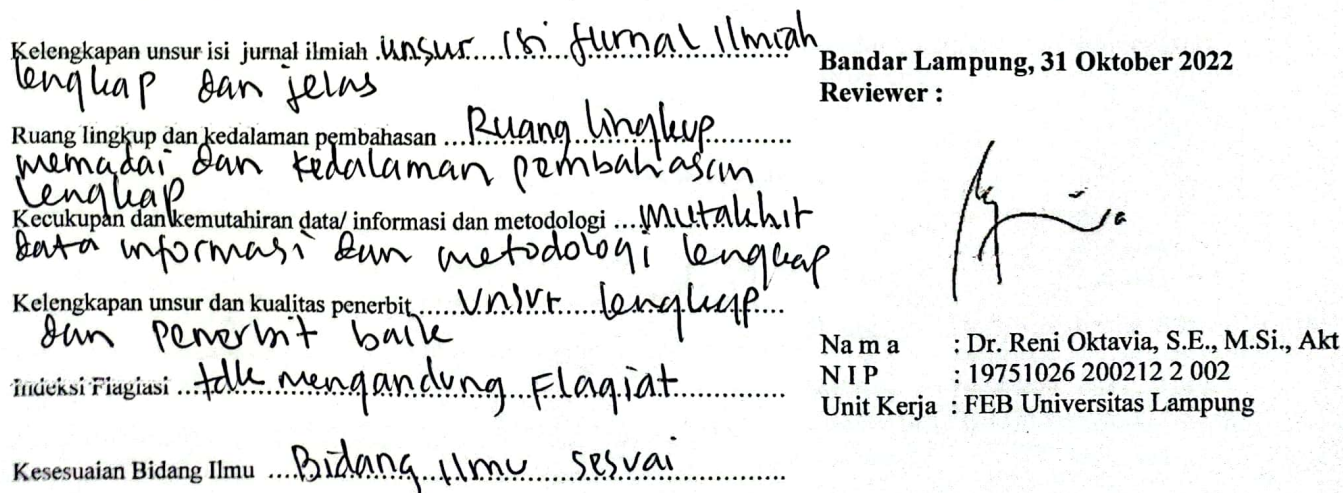 Kelengkapan unsur isi jurnal ilmiah .unsur.....isi jurnal ilmiah
lengkap dan jelas
Ruang lingkup dan kedalaman pembahasan ...Ruang lingkup............
memadai dan kedalaman pembahasan
lengkap
Kecukupan dan kemutahiran data/ informasi dan metodologi ....Mutakhir
data informasi dan metodologi lengkap
Kelengkapan unsur dan kualitas penerbit......Unsur......lengkap....
dan penerbit baik
Indeksi Plagiasi ...tdk mengandung...Plagiat..................
Kesesuaian Bidang Ilmu ....Bidang..Ilmu....sesuai..................
Bandar Lampung, 31 Oktober 2022
Reviewer :
Na m a : Dr. Reni Oktavia, S.E., M.Si., Akt
N I P : 19751026 200212 2 002
Unit Kerja : FEB Universitas Lampung